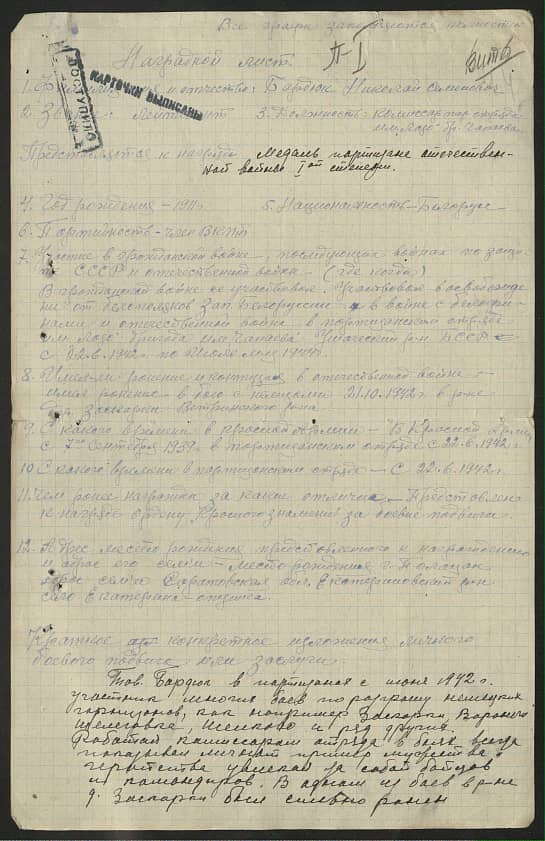 Все графы заполняются полностью
Наградной лист.
П-I
КАРТОЧКИ ВЫПИСАНЫ
ПОСТУПИЛО
1. Фамилия и отчество: Бардюк Николай Семенович
2. Звание: Лейтенант 3. Должность: комиссар отряда
им. Лазо бр. Чапаева
Представляется к награде Медаль партизане отечествен-
ной войны I ой степени.
4. Год рождения – 5. Национальность – Белорус
6. Партийность – член ВКП/б
7. Участие в гражданской войне, последующих войнах по защи-
те СССР и отечественной войне – (где когда)
В гражданской войне не участвовал. Участвовал в освобожде-
нии от белополяков Зап. Белоруссии в войне с белофи-
нами и отечественной войне в партизанском отряде
им. Лазо бригада им. Чапаева р-на БССР
с 22.6.1942г. по июль м-ц 1944г.
8. Имел-ли ранение и контузия в отечественной войне –
имел ранение – в бою с немцами 21.10.1942г. в р-не
Заскорки Ветринского р-на
9. С какого времени в красной армии – В Красной Армии
с 7го Сентября 1939г. в партизанском отряде с 22.6.1942г.
10. С какого времени в партизанском отряде – С 22.6.1942г.
11. Чем ранее награжден за какие отличия – Представлен
к награде ордену Красного знамени за боевые подвиги.
12. Адрес место рождения представленного к награждению
и адрес его семьи – место рождения г.
адрес семьи Саратовская обл. Екатериновский р-н
село Екатерина-
Краткое конкретное изложения личного
боевого подвига или заслуги.
Тов. Бардюк в партизанах с июня 1942г.
участник многих боев по разгрому немецких
гарнизонов, как например Заскорки, Воронечь
и ряд других.
Работая комиссаром отряда в боях всегда
показывал личный пример мужества,
геройства увлекая за собой бойцов
и командиров. В одном из боев в р-не
д. Заскорки был сильно ранен